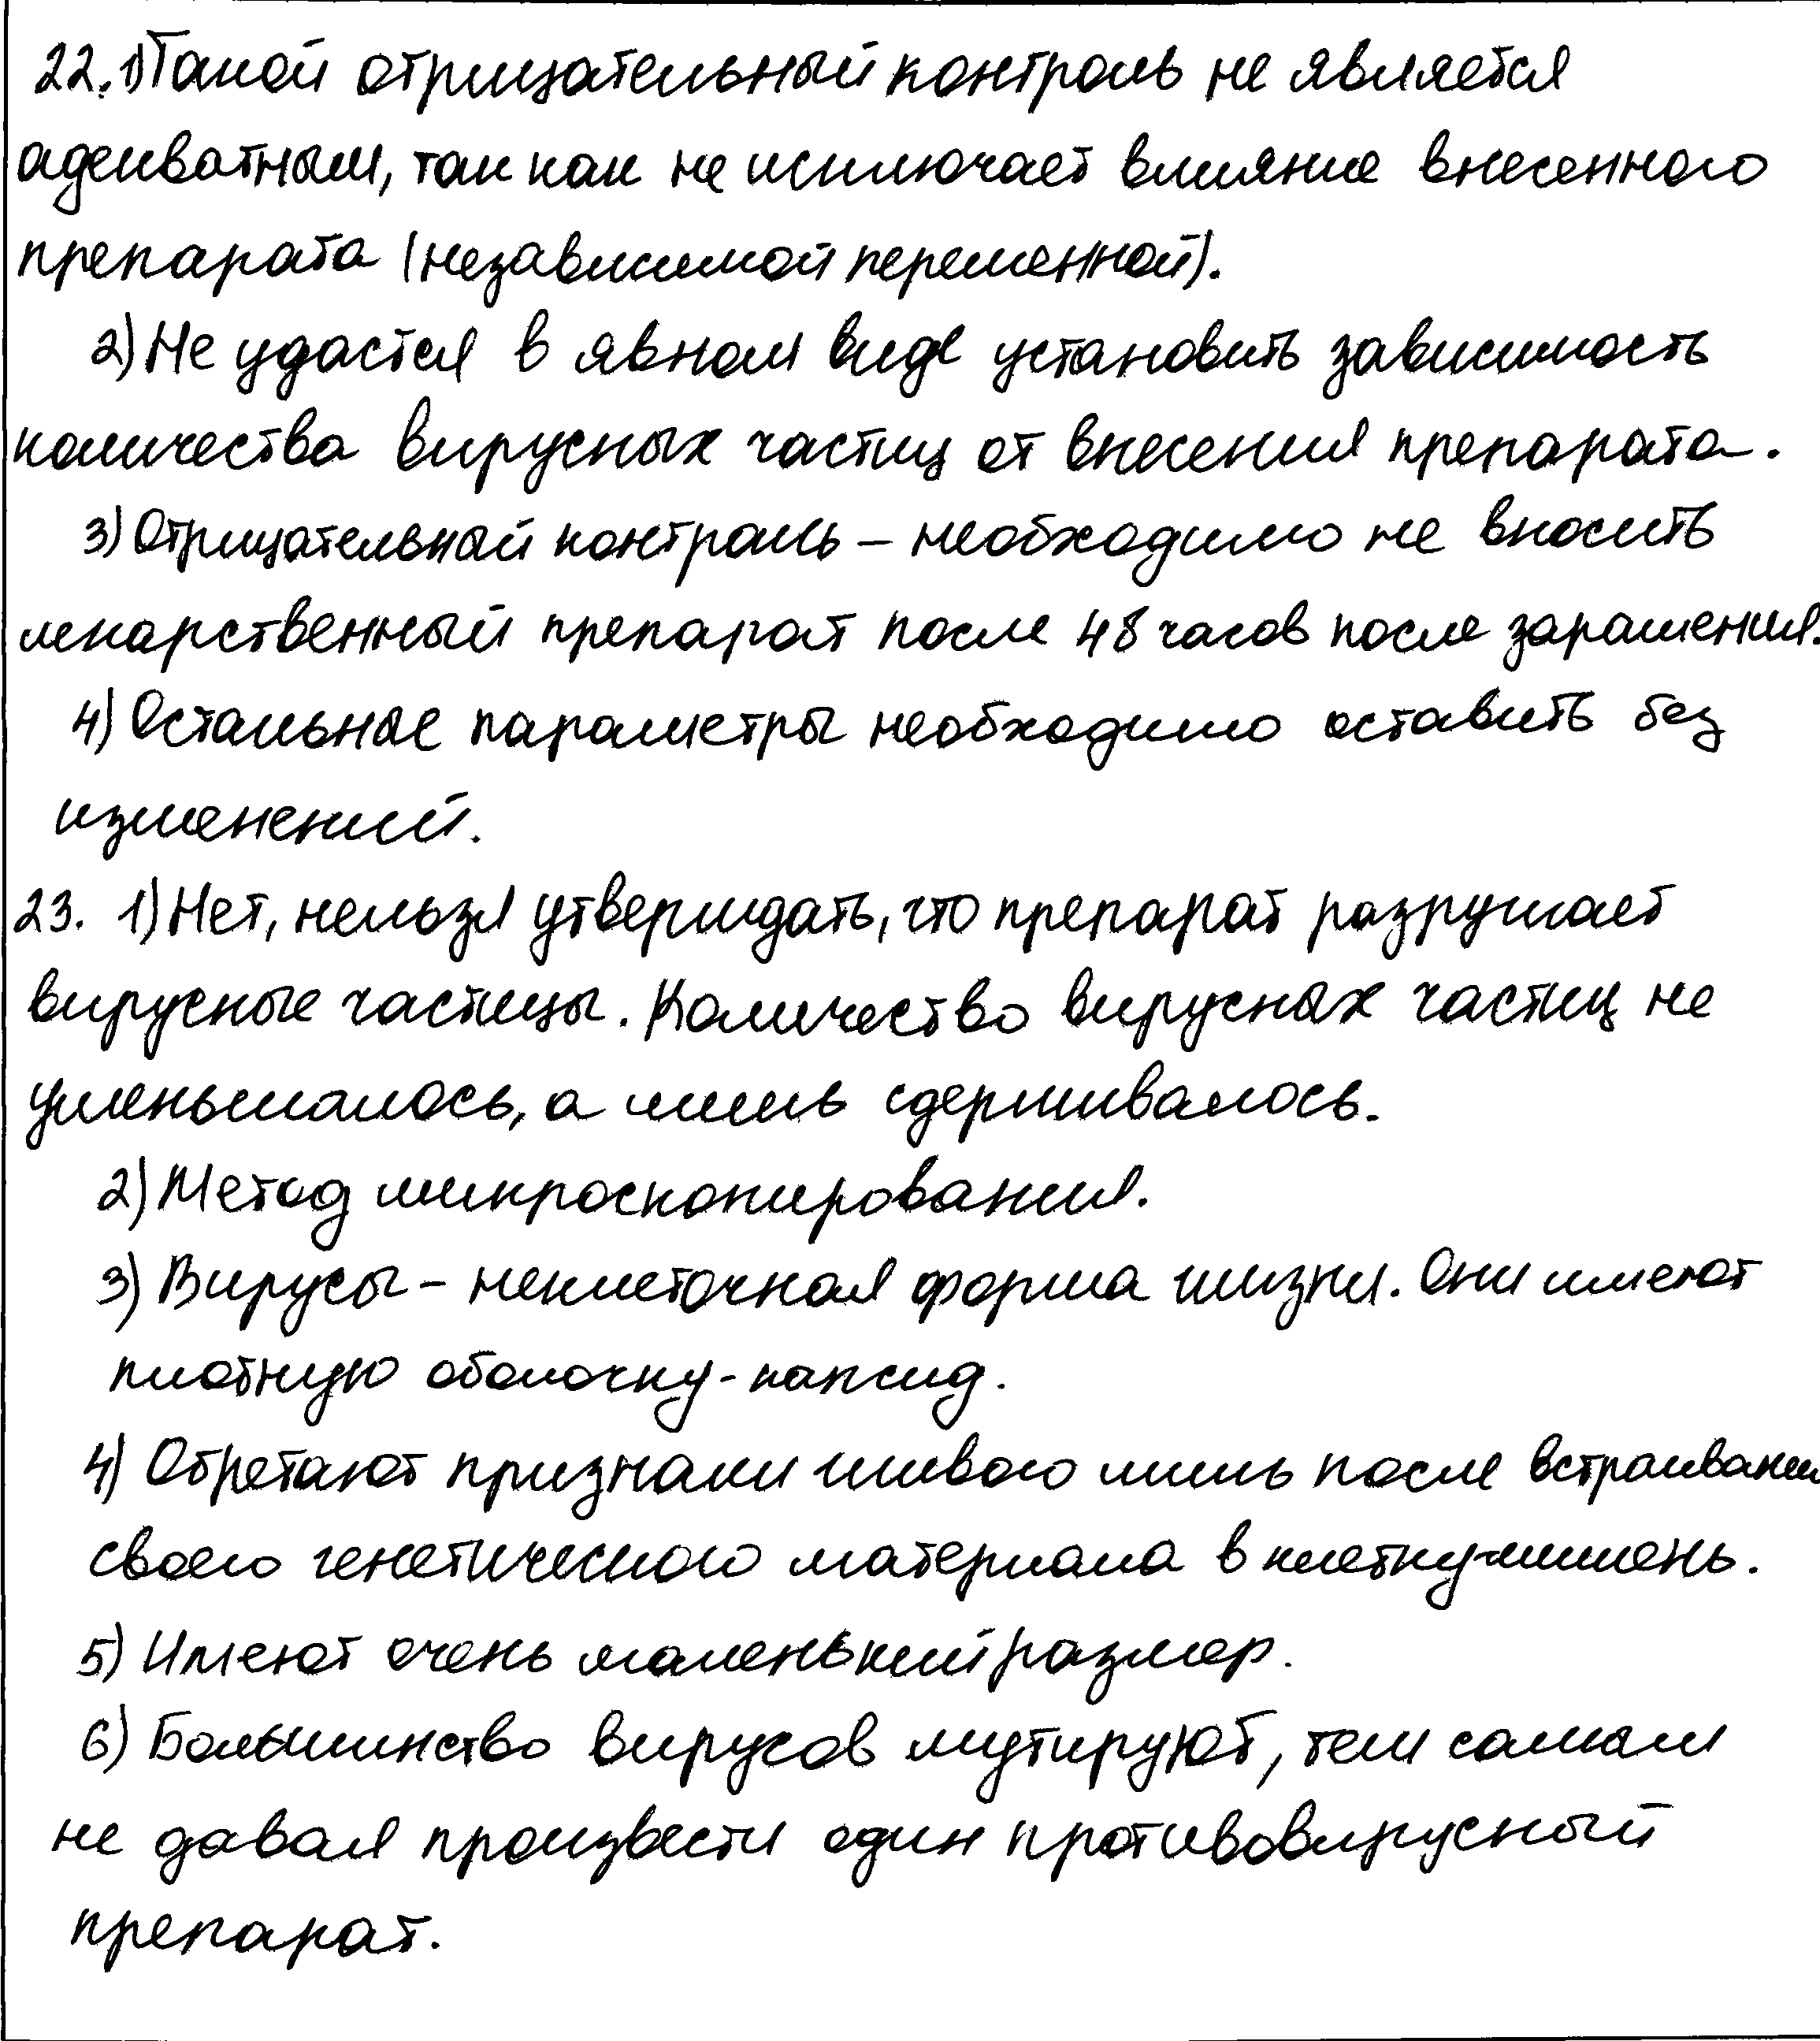 22. 1) Такой отрицательный контроль не является
адекватным, так как не исключает влияние внесенного
препарата (независимой переменной).
2) Не удастся в явном виде установить зависимость
количества вирусных частиц от внесения препарата.
3) Отрицательный контроль – необходимо не вносить
лекарственный препарат после 48 часов после заражения.
4) Остальные параметры необходимо оставить без
изменений.
23. 1) Нет, нельзя утверждать, что препарат разрушает
вирусные частицы. Количество вирусных частиц не
уменьшалось, а лишь сдерживалось.
2) Метод микроскопирования.
3) Вирусы – неклеточная форма жизни. Они имеют
плотную оболочку - капсид.
4) Обретают признаки живого лишь после встраивания
своего генетического материала в клетку-мишень.
5) Имеют очень маленький размер.
6) Большинство вирусов мутируют, тем самым
не давая произвести один противовирусный
препарат.